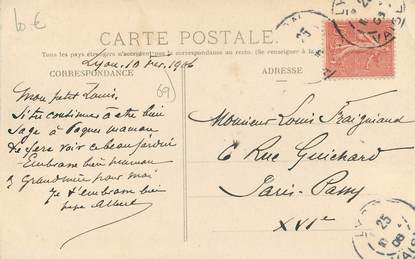 10 €
CARTE POSTALE.
Tous les pays étrangers n'acceptent pas la correspondance au recto. (Se renseigner à la
Lyon, 10 1906
CORRESPONDANCE
ADRESSE
69
Mon petit Louis,
Si tu continues à être bien
sage à Pâques maman
te fera voir ce beau jardin
Embrasse bien maman
& Grand'mère pour moi
Je t'embrasse bien
papa Albert
Monsieur Louis Fraignaud
6 Rue Guichard
Paris-Passy
XVIe
25